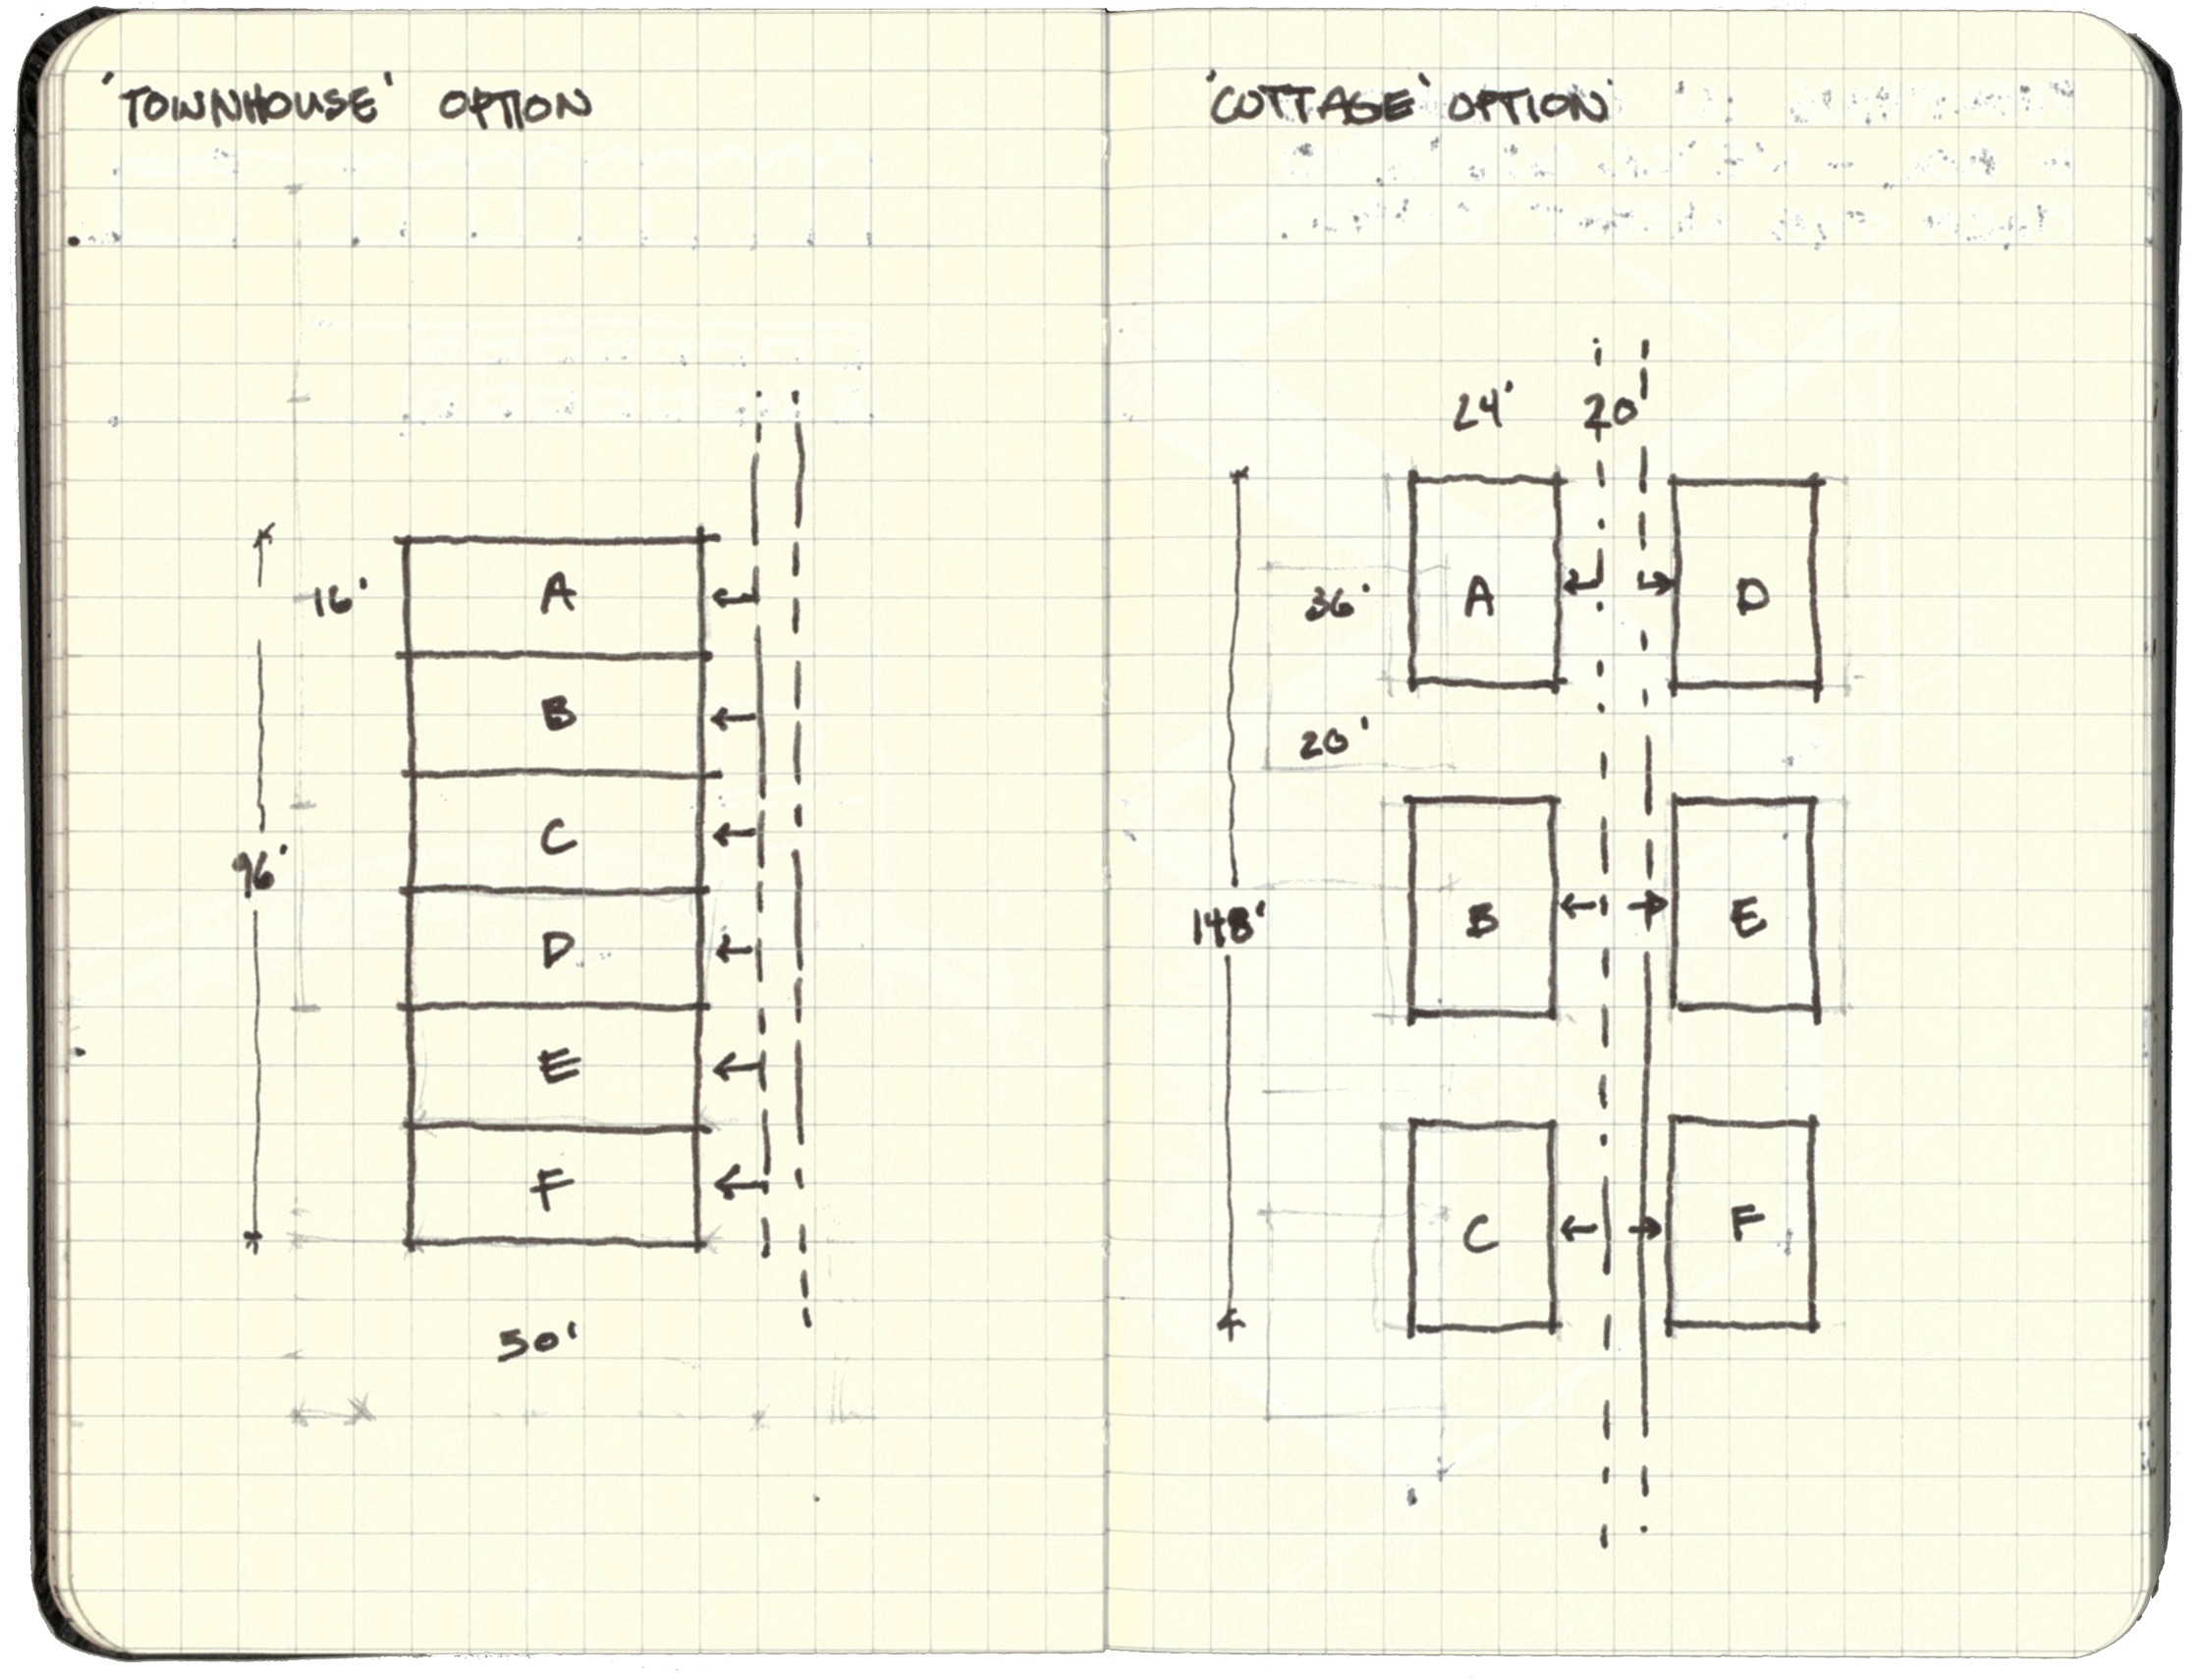 'TOWNHOUSE' OPTION
16'
A
B
C
96'
D
E
F
50'
'COTTAGE' OPTION
24' 20'
36'
A
D
20'
148'
B
E
C
F